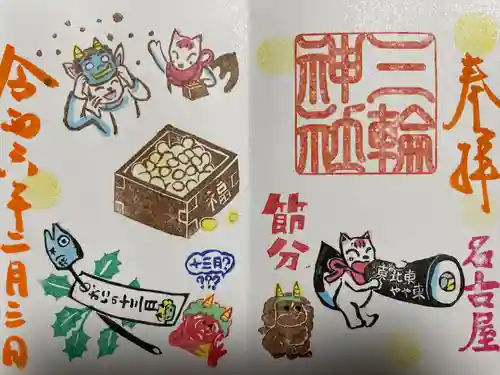 奉拝
名古屋
三輪
神社
節分
東北東
やや東
福
十三月?
???
おにハ十三月
令和六年二月三日